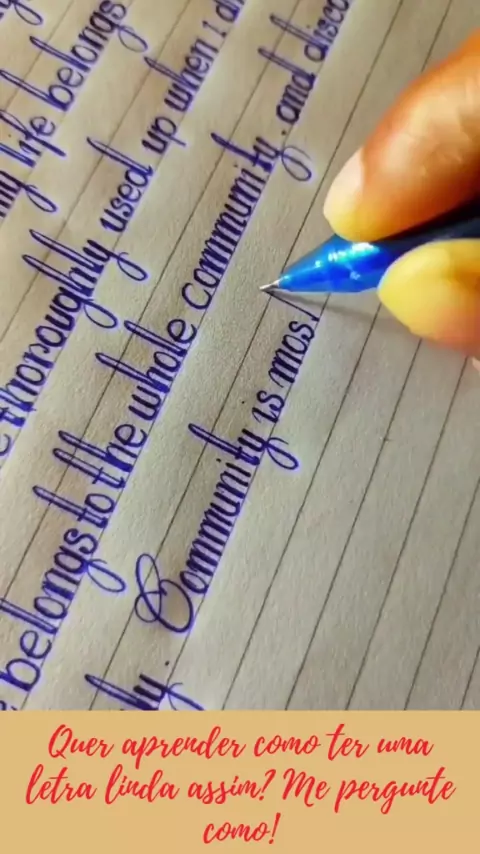 life belongs
thoroughly used up when I
belongs to the whole community. and disco
ly. Community is mos
Quer aprender como ter uma
letra linda assim? Me pergunte
como!